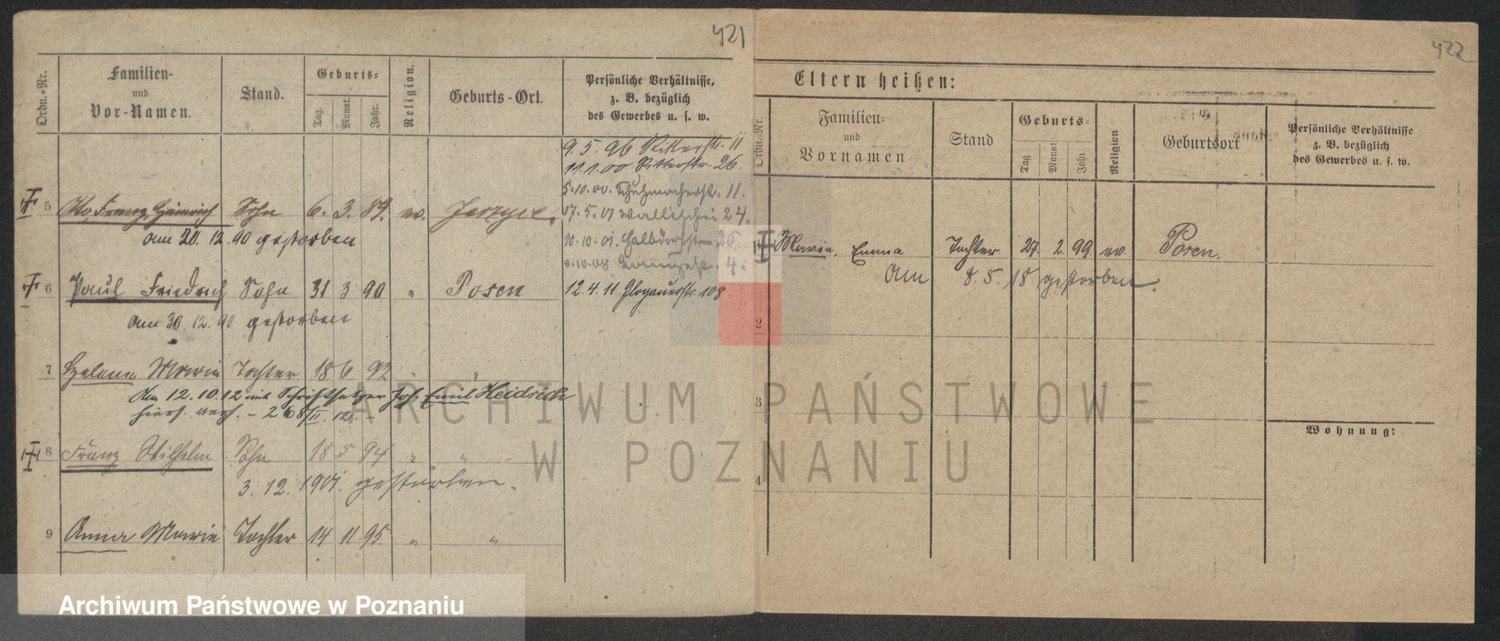 421
Ordn.-Nr.
Familien-
und
Vor-Namen.
Stand.
Geburts-
Tag.
Monat.
Jahr.
Religion.
Geburts-Ort.
Persönliche Verhältnisse,
z. B. bezüglich
des Gewerbes u. s. w.
9.5.96 Ritterstr. 11
11.1.00 Ritterstr. 26
5.10.00. Schuhmacherst. 11.
17.5.01 Wallischei 24.
10.10.01. Halbdorfstr 26.
8.10.08 4.
12.4.11 Glogauerstr. 108.
5 Otto, Franz, Heinrich Sohn 6. 3. 89. ev. Jerzyce.
am 20.12.90 gestorben
6 Paul Friedrich Sohn 31 3 90 " Posen
am 30.12.90. gestorben
7 Helene Marie Tochter 18 6 92 " "
Am 12.10.12 mit Schriftsetzer Joh. Emil Heidrich
hiers. verh.
8 Franz Wilhelm Sohn 18 5 94 " "
3.12.1901. gestorben.
9 Anna Marie Tochter 14 11 95. " "
422
Eltern heißen:
Ordn.-Nr.
Familien-
und
Vornamen
Stand
Geburts-
Tag
Monat
Jahr
Religion
Geburtsort
Persönliche Verhältnisse
z. B. bezüglich
des Gewerbes u. s. w.
Marie, Emma Tochter 27. 2. 99. ev Posen.
Am 8.5.18 gestorben.
2
3
4
Wohnung:
ARCHIWUM PAŃSTWOWE
W POZNANIU
Archiwum Państwowe w Poznaniu